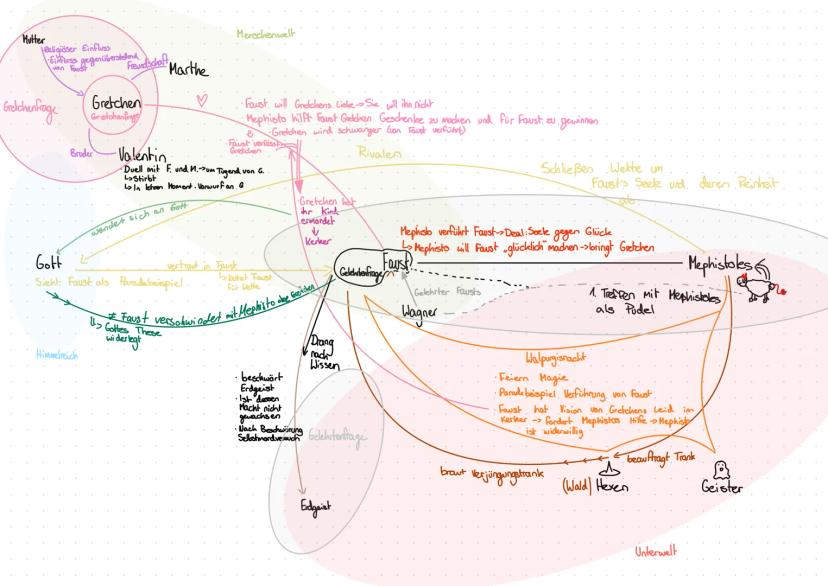 Menschenwelt
Mutter
· Religiöser Einfluss
· Einfluss gegenüberstehend
von Faust
Freundschaft
Marthe
Gretchenfrage
Gretchen
Gretchenfrage
Bruder
Valentin
Duell mit F. und M. → um Tugend von G.
↳ Stirbt
↳ In letzem Moment: Vorwurf an G
· Faust will Gretchens Liebe → Sie will ihn nicht
· Mephisto hilft Faust Gretchen Geschenke zu machen und für Faust zu gewinnen
· Gretchen wird schwanger (von Faust verführt)
Faust verlässt
Gretchen
Rivalen
Schließen Wette um
Faust's Seele und deren Reinheit
ab
· Gretchen hat
ihr Kind
ermordet
↓
Kerker
wendet sich an Gott
Gott
vertraut in Faust
↳ bietet Faust
für Wette
Sieht Faust als Paradebeispiel
≠ Faust verschwindet mit Mephisto ohne Gretchen
↳ Gottes These
widerlegt
Himmelreich
Mephisto verführt Faust → Deal: Seele gegen Glück
↳ Mephisto will Faust „glücklich" machen → bringt Gretchen
Faust
Gelehrtenfrage
Mephistoles
Gelehrter Fausts
Wagner
1. Treffen mit Mephistoles
als Pudel
Drang
nach
Wissen
· beschwört
Erdgeist
· Ist dessen
Macht nicht
gewachsen
· Nach Beschwörung
Selbstmordversuch
Gelehrtenfrage
Erdgeist
Walpurgisnacht
· Feiern Magie
· Paradebeispiel Verführung von Faust
· Faust hat Vision von Gretchens Leid im
Kerker → fordert Mephistos Hilfe → Mephisto
ist widerwillig
beauftragt Trank
braut Verjüngungstrank
(Wald) Hexen
Geister
Unterwelt